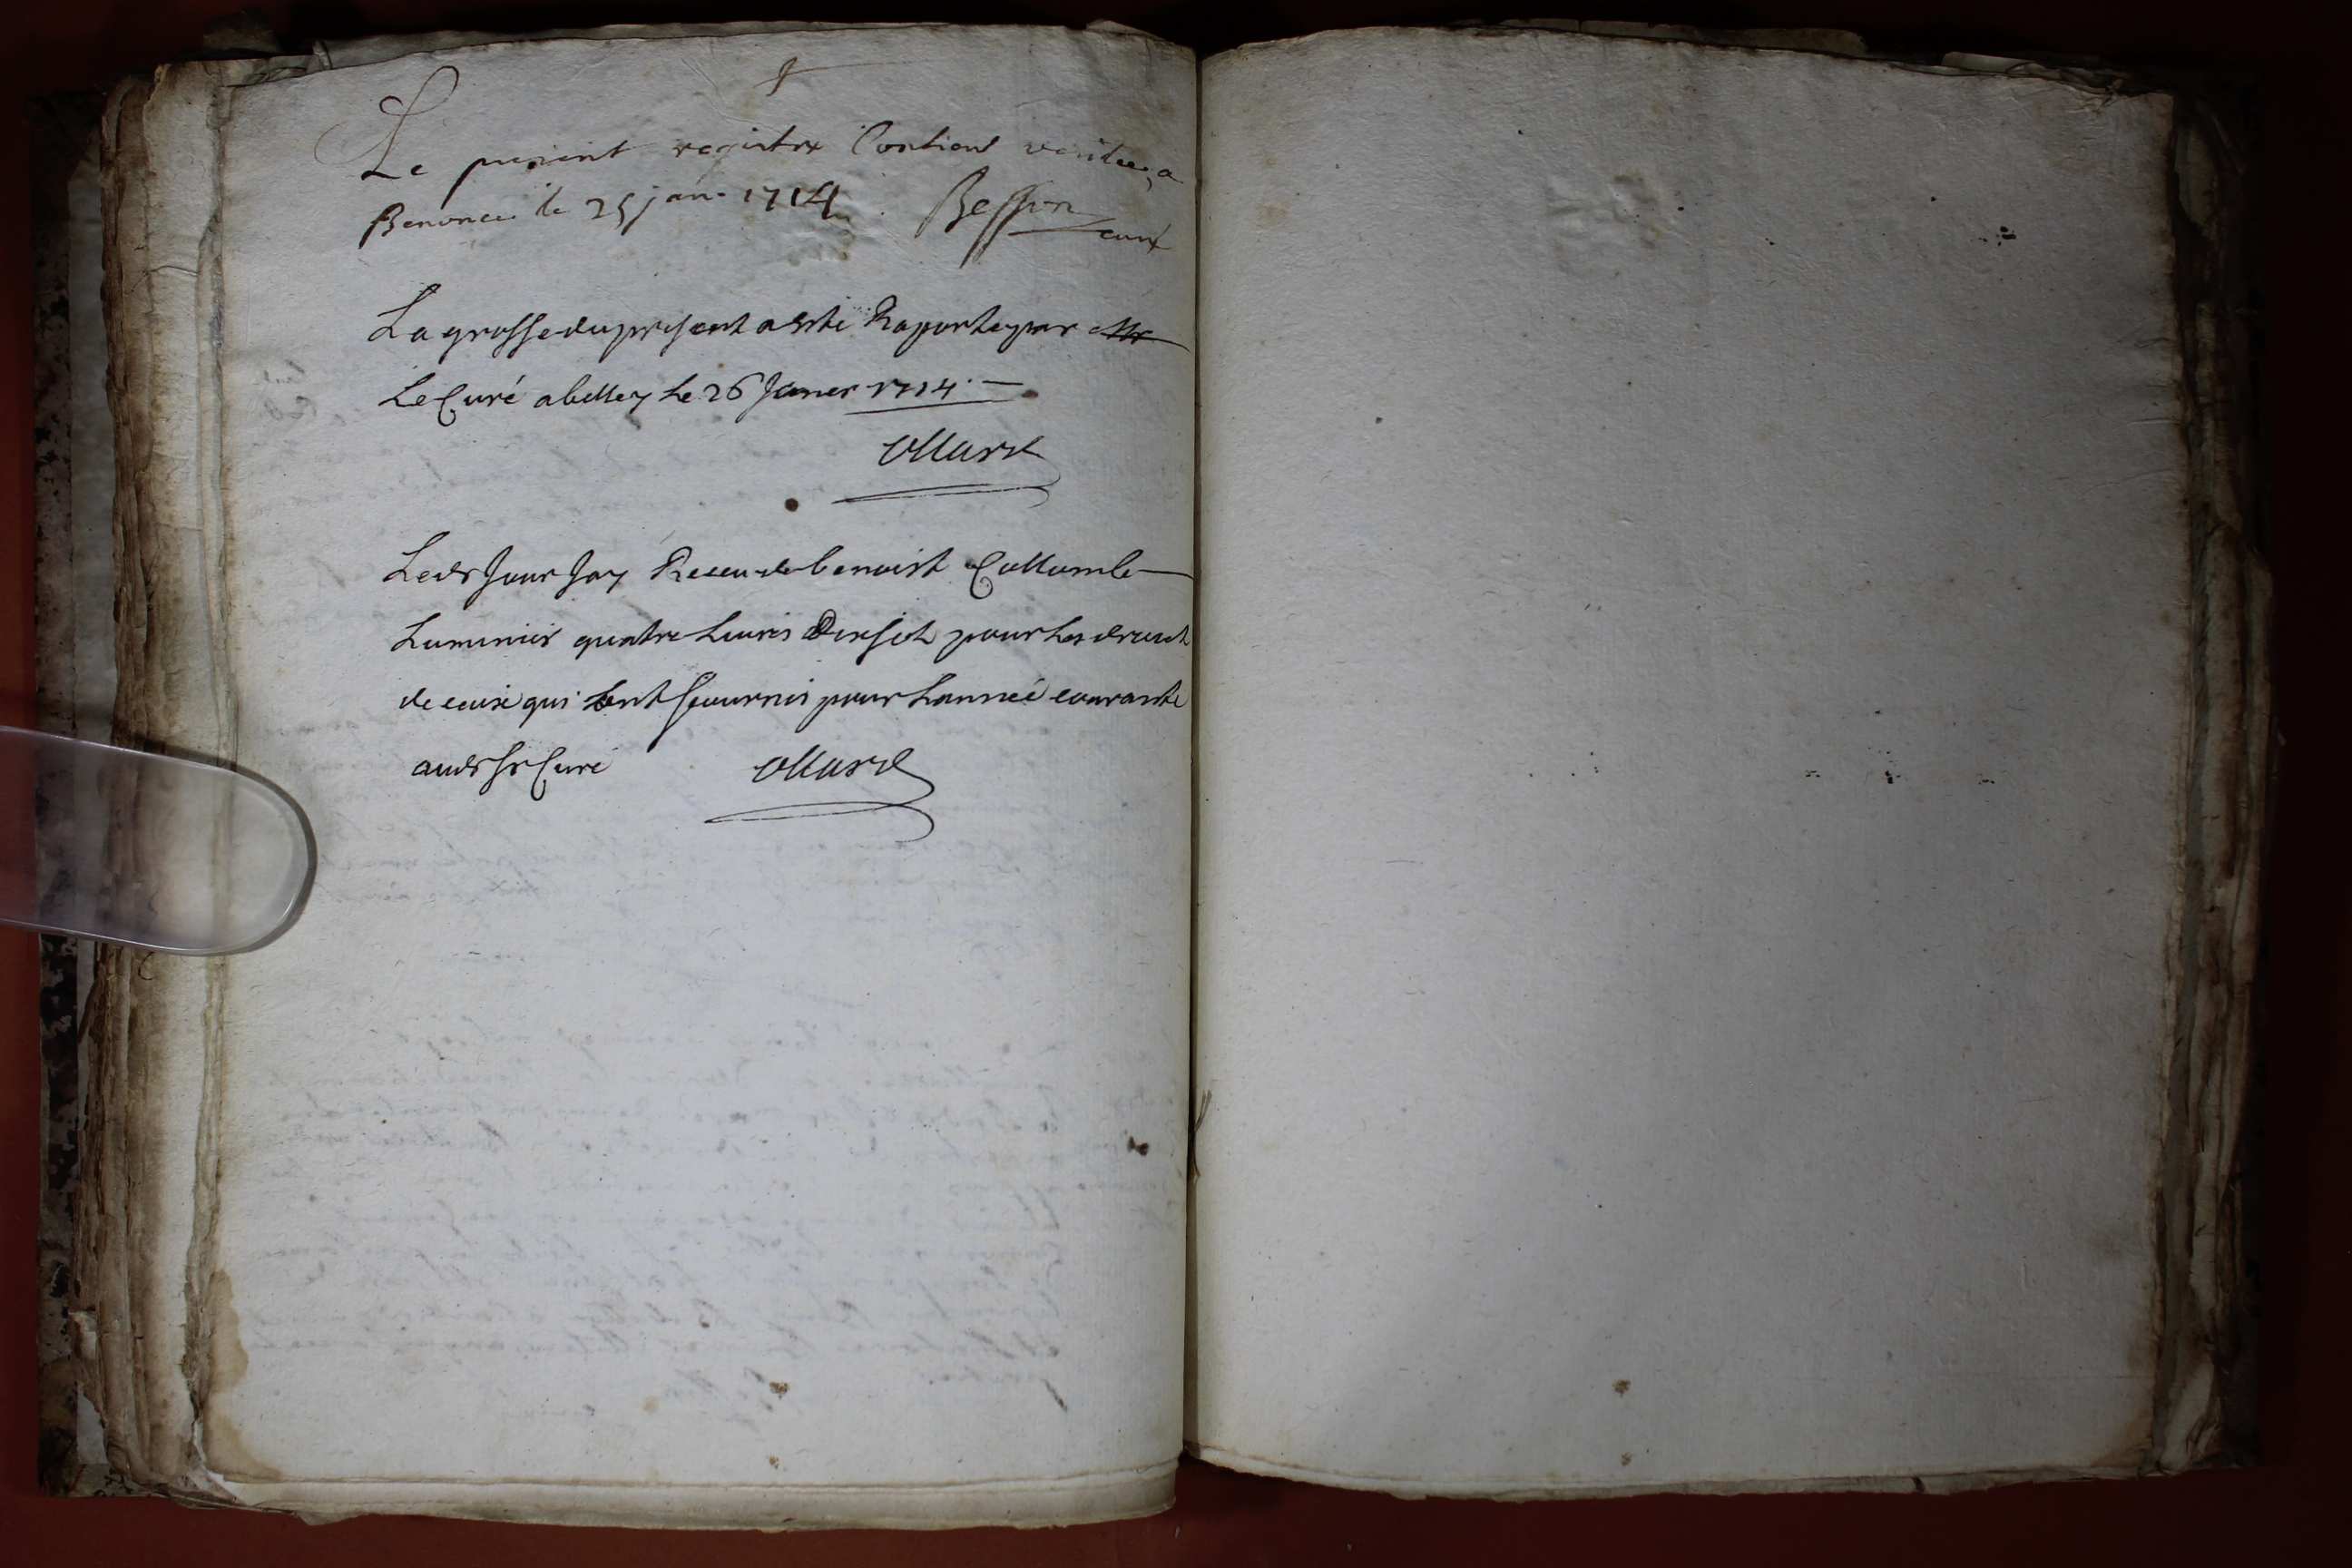 Le present registre Contient veritee, a
Benonce le 25 janr 1714 Besson
curé
La grosse du present a este Raporte par Mr
Le Curé a belley le 26 Janier 1714
Ledt Jour Jay Receu de benoist Collomb
Luminier quatre Liures Dixsept pour les droits
de ceux qui sont fournis pour Lanneé courante
audt Sr Curé